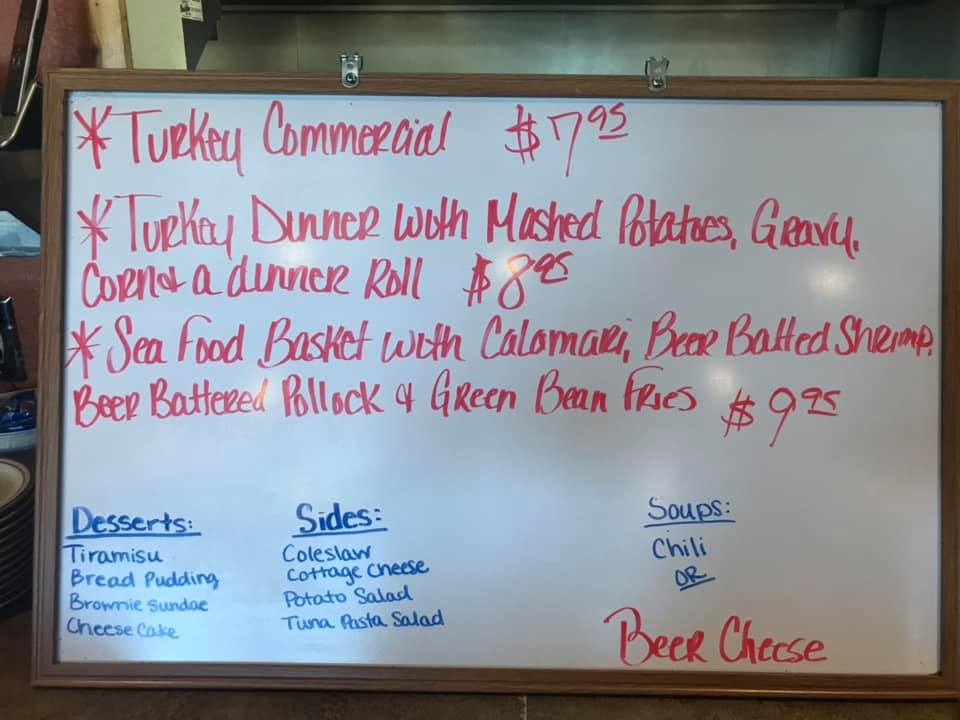 * Turkey Commercial $7.95
* Turkey Dinner with Mashed Potatoes, Gravy,
Corn & a dinner Roll $8.95
* Sea Food Basket with Calamari, Beer Batted Shrimp,
Beer Battered Pollock & Green Bean Fries $9.95
Desserts:
Tiramisu
Bread Pudding
Brownie Sundae
Cheese Cake
Sides:
Coleslaw
Cottage Cheese
Potato Salad
Tuna Pasta Salad
Soups:
Chili
OR
Beer Cheese